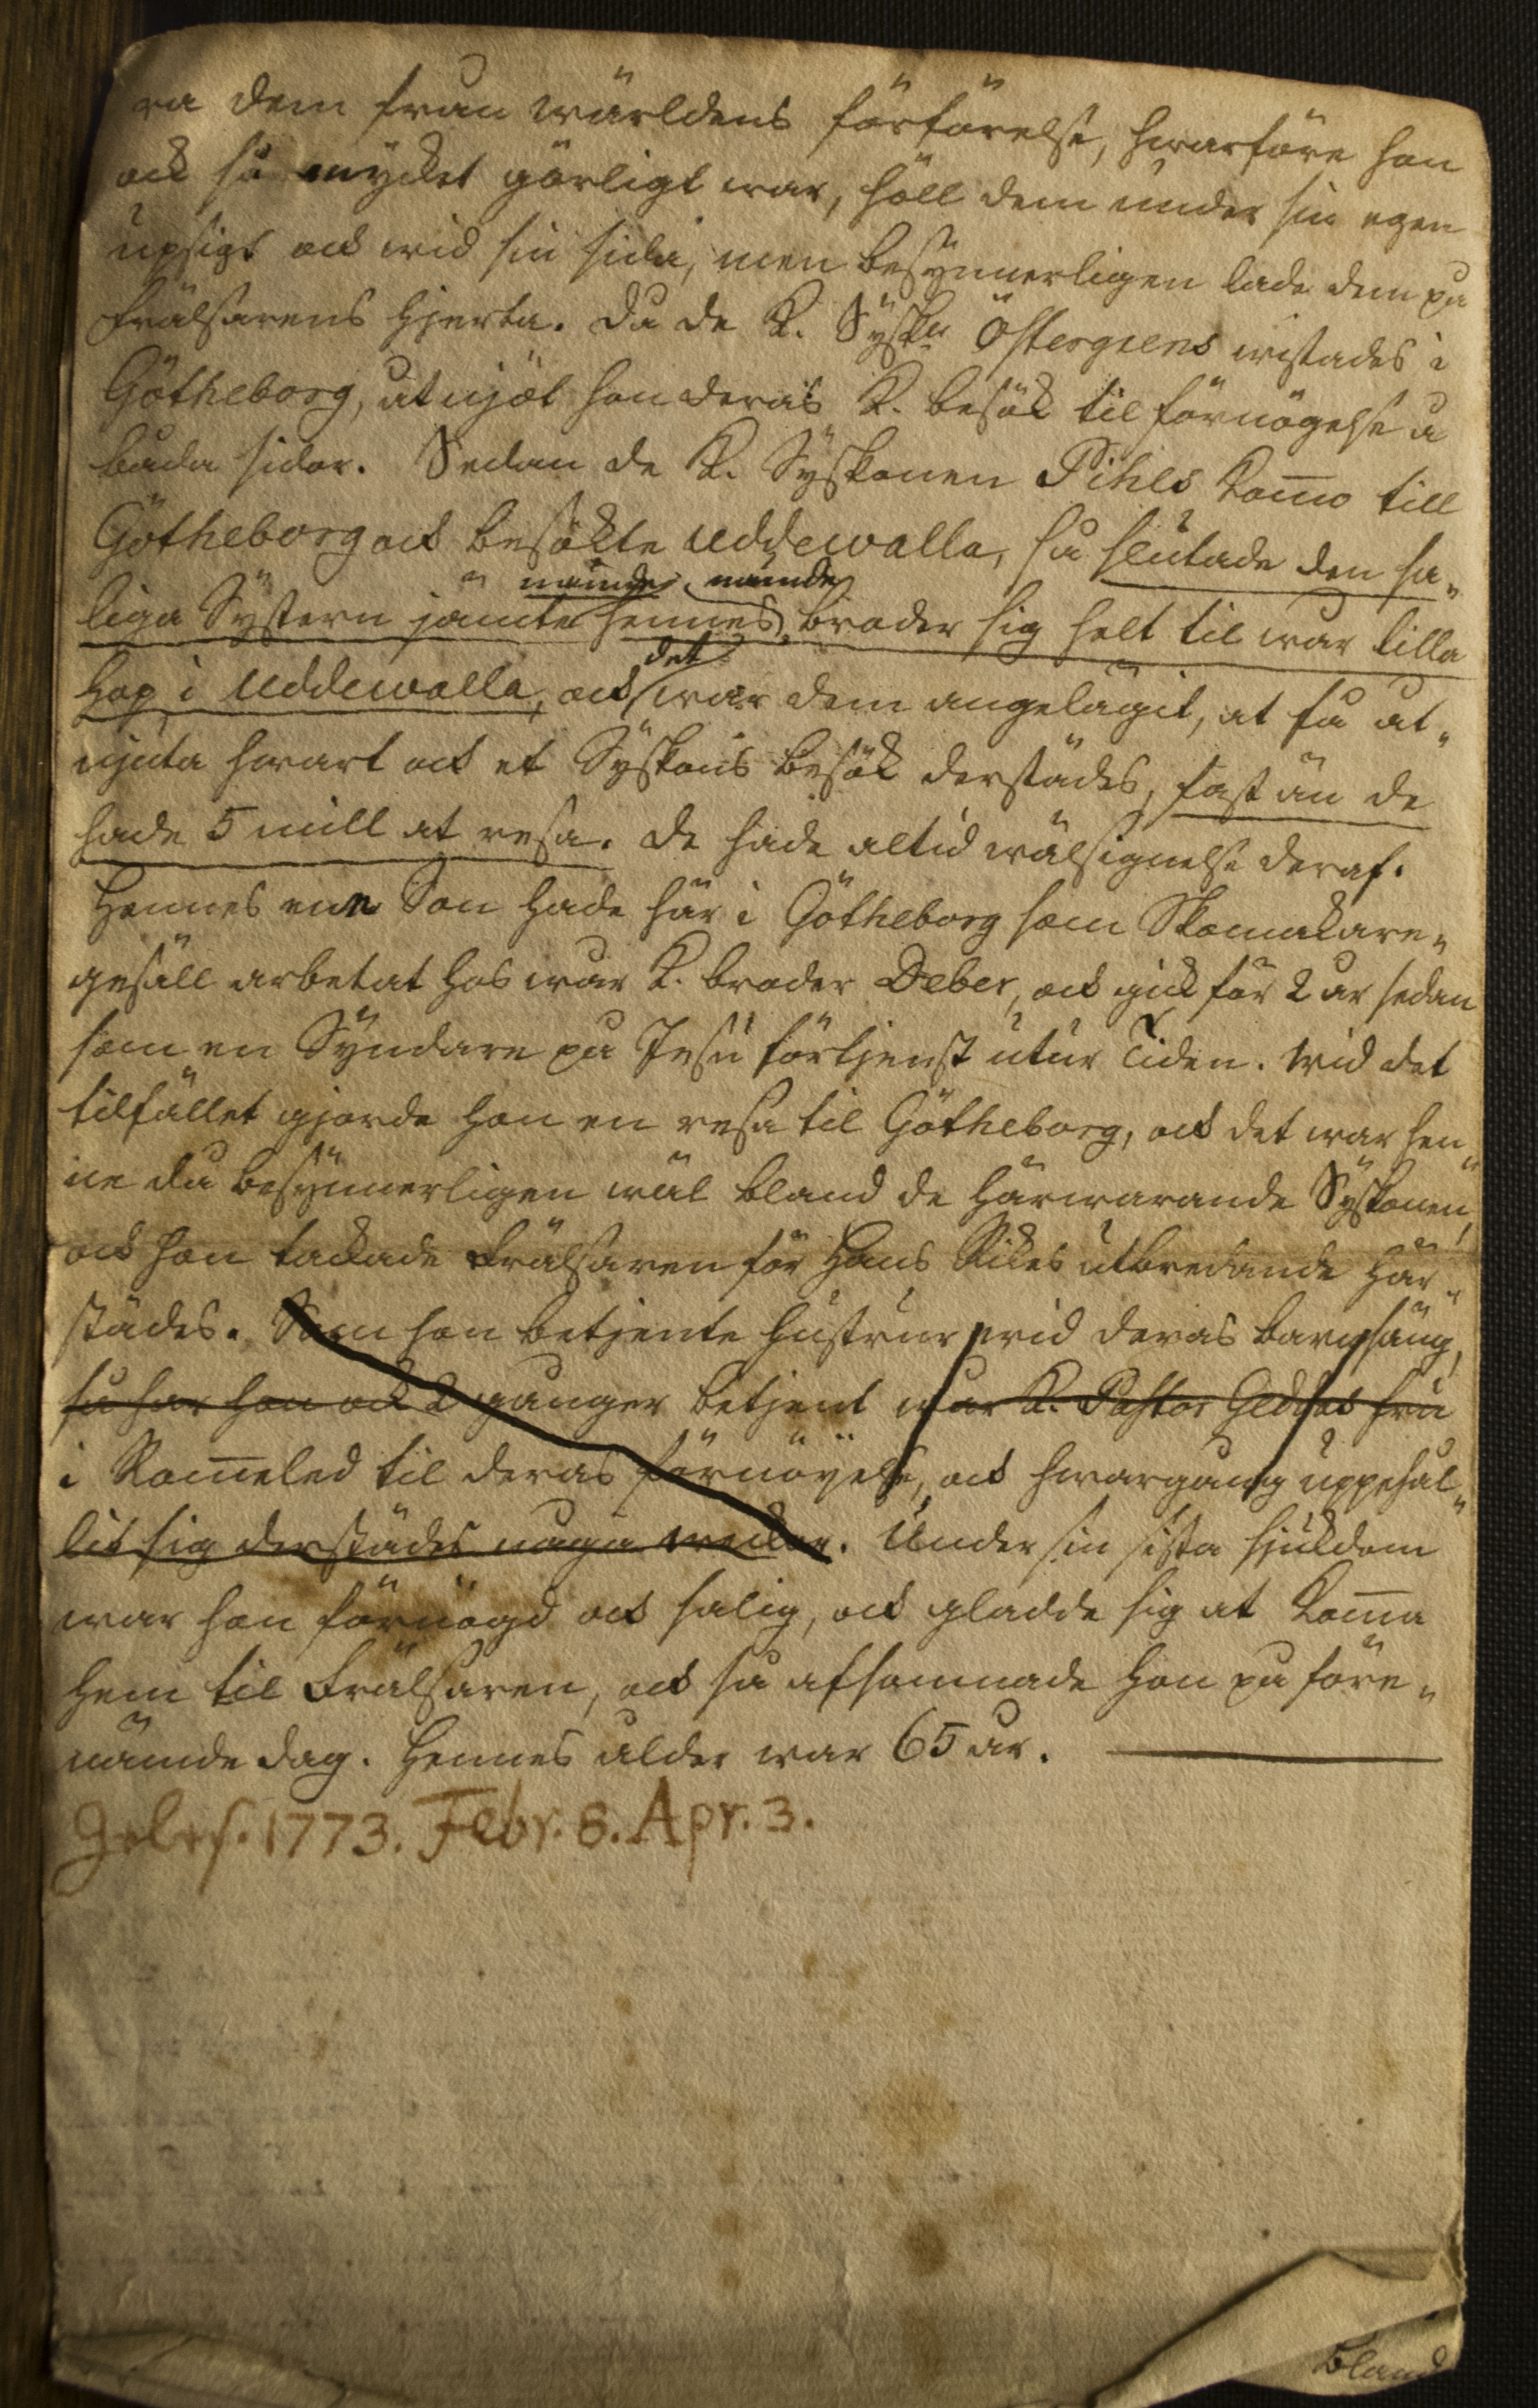 ra dem från wärldens förförelse, hwarföre hon
ock så mycket görligt war, höll dem under sin egen
upsigt ock wid sin sida, men besynnerligen lade dem på
Frälsarens hjerta. Då de K. Syskn Östergrens wistades i
Götheborg, åtnjöt hon deras K. besök til förnögelse å
båda sidor. Sedan de K. Syskonen Pihls kommo till
Götheborg ock besökte Uddewalla, så slutade den sa„
liga Systern jämte hennes nämde broder sig helt til wår lilla
hop i Uddewalla, ock det war dem angelägit, at få åt„
njuta hwart ock et Syskons besök derstädes, fast än de
hade 5 mill at resa. De hade altid wälsignelse deraf.
Hennes ene Son hade här i Götheborg som Skomakare„
gesäll arbetat hos wår K. broder Deber, ock gick för 2 år sedan
som en Syndare på Jesu förtjenst utur Tiden. Wid det
tilfället gjorde hon en resa til Götheborg, ock det war hen„
ne då besynnerligen wäl bland de härwarande Syskonen,
ock hon tackade Frälsaren för Hans Rikes utbredande här„
städes. Som hon betjente hustrur wid deras barnsäng,
så har hon ock 2 gånger betjent wår K. Pastor Geddas fru
i Rommeled til deras förnöyelse, ock hwargång uppehål„
lit sig derstädes några weckor. Under sin sista sjukdom
war hon förnögd ock salig, ock gladde sig at komma
hem til Frälsaren, ock så afsomnade hon på före„
nämde dag. Hennes ålder war 65 år.
Geles. 1773. Febr. 8. Apr. 3.
Bland